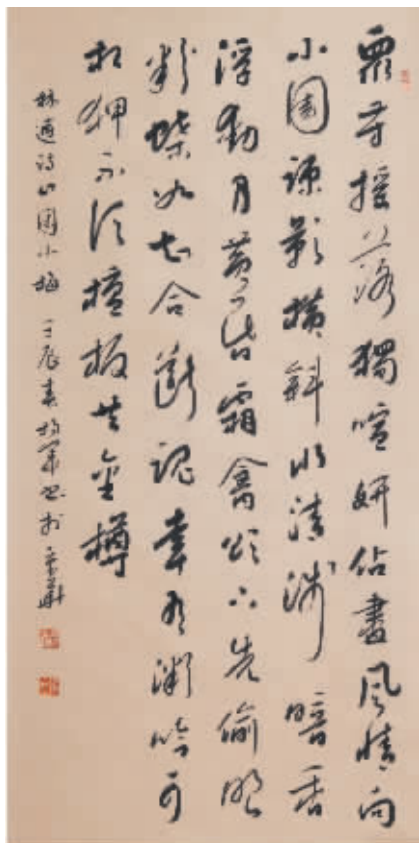 眾芳搖落獨喧妍佔盡風情向
小園疎影橫斜水清淺暗香
浮動月黃昏霜禽欲下先偷眼
粉蝶如知合斷魂幸有微吟可
相狎不須檀板共金樽
林逋诗山園小梅 壬辰春书於京華